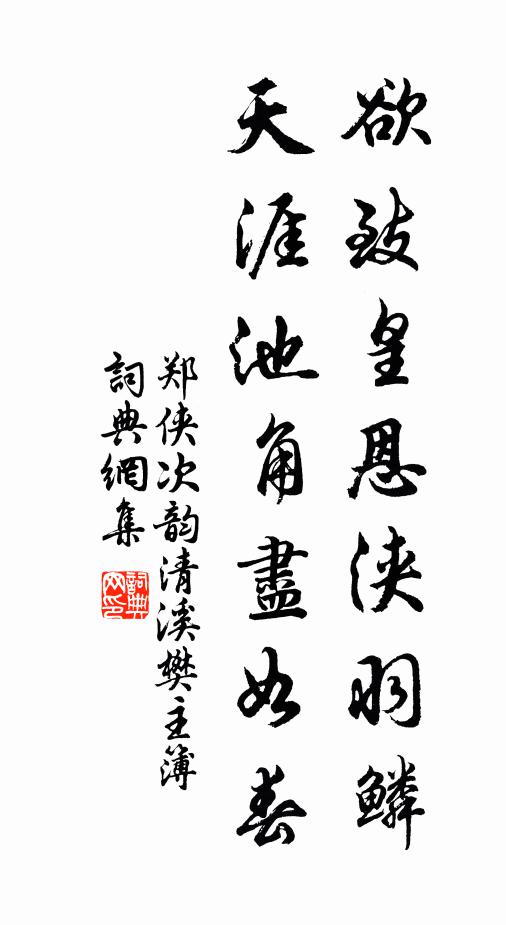 欲致皇恩浃羽鳞
天涯池角盡如春
郑侠次韵清溪樊主簿
詞典網集
詞典网印